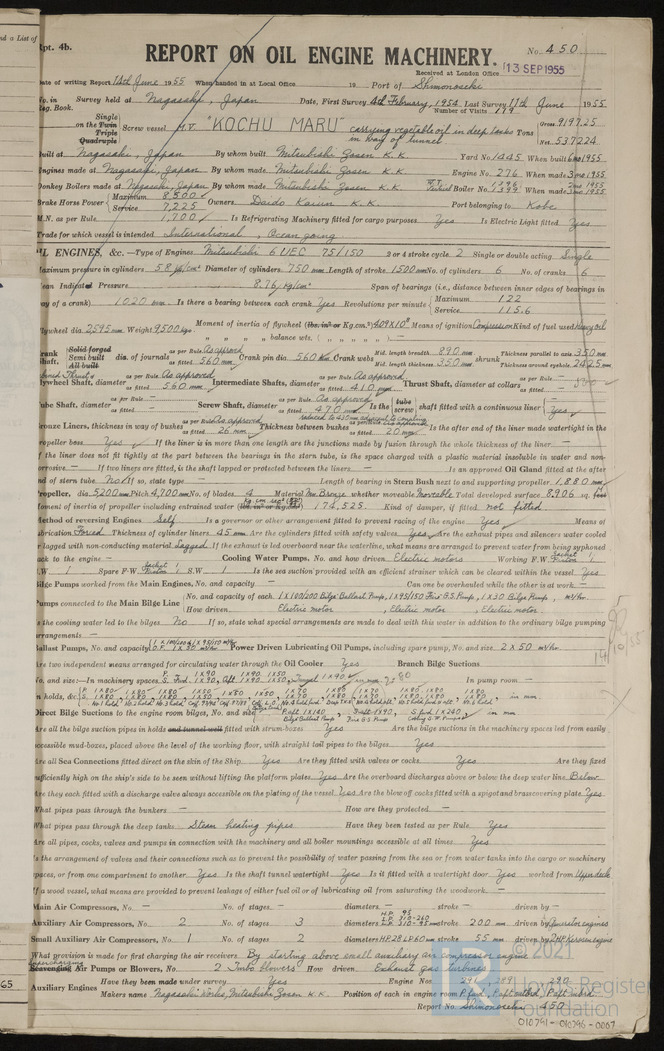 nd a List of
Rpt. 4b.
REPORT ON OIL ENGINE MACHINERY.
No. 450
Received at London Office
13 SEP 1955
Date of writing Report 14th June 1955 When handed in at Local Office 19 Port of Shimonoseki
No. in Reg. Book.
Survey held at Nagasaki, Japan Date, First Survey 4th February, 1954 Last Survey 11th June 1955
Number of Visits 179
Single on the Twin Triple Quadruple Screw vessel M.V. "KOCHU MARU" carrying vegetable oil in deep tanks in way of tunnel Tons Gross 9197.25 Net 5372.24
Built at Nagasaki, Japan By whom built Mitsubishi Zosen K.K. Yard No. 1445 When built 6 mo 1955
Engines made at Nagasaki, Japan By whom made Mitsubishi Zosen K.K. Engine No. 276 When made 3 mo 1955
Donkey Boilers made at Nagasaki, Japan By whom made Mitsubishi Zosen K.K. Boiler No. 1399 When made
Brake Horse Power Maximum 8,500 Service 7,225 Owners Daido Kaiun K.K. Port belonging to Kobe
M.N. as per Rule 1,700 Is Refrigerating Machinery fitted for cargo purposes Yes Is Electric Light fitted Yes
Trade for which vessel is intended International, Ocean going
OIL ENGINES, &c.—Type of Engines Mitsubishi 6 UEC 75/150 2 or 4 stroke cycle 2 Single or double acting Single
Maximum pressure in cylinders 58 kg/cm² Diameter of cylinders 750 mm Length of stroke 1500 mm No. of cylinders 6 No. of cranks 6
Mean Indicated Pressure 8.76 kg/cm² Span of bearings (i.e., distance between inner edges of bearings in
way of a crank) 1020 mm Is there a bearing between each crank Yes Revolutions per minute Maximum 122 Service 115.6
Flywheel dia. 2595 mm Weight 9500 kgs Moment of inertia of flywheel Means of ignition Compression Kind of fuel used Heavy oil
Crank Shaft, Solid forged Semi built All built dia. of journals as per Rule As approved as fitted 560 mm Crank pin dia. 560 mm Crank webs Mid. length breadth 890 mm Mid. length thickness 350 mm shrunk Thickness parallel to axis 350 mm Thickness around eyehole 242.5 mm
Flywheel Shaft, diameter as per Rule As approved as fitted 560 mm Intermediate Shafts, diameter as per Rule As approved as fitted 410 mm Thrust Shaft, diameter at collars as per Rule — as fitted
Tube Shaft, diameter as per Rule — as fitted — Screw Shaft, diameter as per Rule As approved as fitted 470 mm Is the tube screw shaft fitted with a continuous liner Yes
Bronze Liners, thickness in way of bushes as per Rule As approved as fitted 26 mm Thickness between bushes as fitted 20 mm Is the after end of the liner made watertight in the
propeller boss Yes If the liner is in more than one length are the junctions made by fusion through the whole thickness of the liner —
If the liner does not fit tightly at the part between the bearings in the stern tube, is the space charged with a plastic material insoluble in water and non-
corrosive — If two liners are fitted, is the shaft lapped or protected between the liners — Is an approved Oil Gland fitted at the after
end of stern tube No If so, state type — Length of bearing in Stern Bush next to and supporting propeller 1,880 mm
Propeller, dia 5200 mm Pitch 4,700 mm No. of blades 4 Material Mn. Bronze whether moveable Total developed surface 8.906 sq.
Moment of inertia of propeller including entrained water 174,525 Kind of damper, if fitted not fitted
Method of reversing Engines Self Is a governor or other arrangement fitted to prevent racing of the engine Yes Means of
lubrication Forced Thickness of cylinder liners 45 mm Are the cylinders fitted with safety valves Yes Are the exhaust pipes and silencers water cooled
or lagged with non-conducting material Lagged If the exhaust is led overboard near the waterline, what means are arranged to prevent water from being syphoned
back to the engine — Cooling Water Pumps, No. and how driven Electric motors Working F.W. 1
S.W. 1 Spare F.W. 1 S.W. 1 Is the sea suction provided with an efficient strainer which can be cleared within the vessel Yes
Bilge Pumps worked from the Main Engines, No. and capacity — Can one be overhauled while the other is at work —
Pumps connected to the Main Bilge Line No. and capacity of each 1x100/200 Bilge Ballast Pump, 1x95/150 Fire & G.S. Pump, 1x30 Bilge Pump, m³/hr
How driven Electric motor, Electric motor, Electric motor.
Is the cooling water led to the bilges No If so, state what special arrangements are made to deal with this water in addition to the ordinary bilge pumping
arrangements —
Ballast Pumps, No. and capacity Power Driven Lubricating Oil Pumps, including spare pump, No. and size 2 x 50 m³/hr
Are two independent means arranged for circulating water through the Oil Cooler Yes Branch Bilge Suctions
No. and size:—In machinery spaces In pump room —
In holds, &c. in mm.
Direct Bilge Suctions to the engine room bilges, No. and size P. aft 1x140 S. fwd. 1x240 in mm
Are all the bilge suction pipes in holds and tunnel well fitted with strum-boxes Yes Are the bilge suctions in the machinery spaces led from easily
accessible mud-boxes, placed above the level of the working floor, with straight tail pipes to the bilges Yes
Are all Sea Connections fitted direct on the skin of the Ship Yes Are they fitted with valves or cocks Yes Are they fixed
sufficiently high on the ship's side to be seen without lifting the platform plates Yes Are the overboard discharges above or below the deep water line Below
Are they each fitted with a discharge valve always accessible on the plating of the vessel Yes Are the blow off cocks fitted with a spigot and brass covering plate Yes
What pipes pass through the bunkers — How are they protected —
What pipes pass through the deep tanks Steam heating pipes Have they been tested as per Rule Yes
Are all pipes, cocks, valves and pumps in connection with the machinery and all boiler mountings accessible at all times Yes
Is the arrangement of valves and their connections such as to prevent the possibility of water passing from the sea or from water tanks into the cargo or machinery
spaces, or from one compartment to another Yes Is the shaft tunnel watertight Yes Is it fitted with a watertight door Yes worked from Upper deck
If a wood vessel, what means are provided to prevent leakage of either fuel oil or of lubricating oil from saturating the woodwork. —
Main Air Compressors, No. — No. of stages — diameters — stroke — driven by —
Auxiliary Air Compressors, No. 2 No. of stages 3 diameters stroke 200 mm driven by Generator engines
Small Auxiliary Air Compressors, No. 1 No. of stages 2 diameters H.P. 28 L.P. 60 mm stroke 55 mm driven by 2 HP Kerosine engine
What provision is made for first charging the air receivers By starting above small auxiliary air compressor engine
Scavenging Air Pumps or Blowers, No. 2 Turbo blowers How driven Exhaust gas turbine
Auxiliary Engines Have they been made under survey Yes Engine Nos. 291, 289, 290
Makers name Nagasaki Works, Mitsubishi Zosen K.K. Position of each in engine room P. fwd., P. aft outbd, P. aft inbd.
Report No. Shimonoseki 450
65
© 2021
Lloyd's Register
Foundation
010791-010796-0067